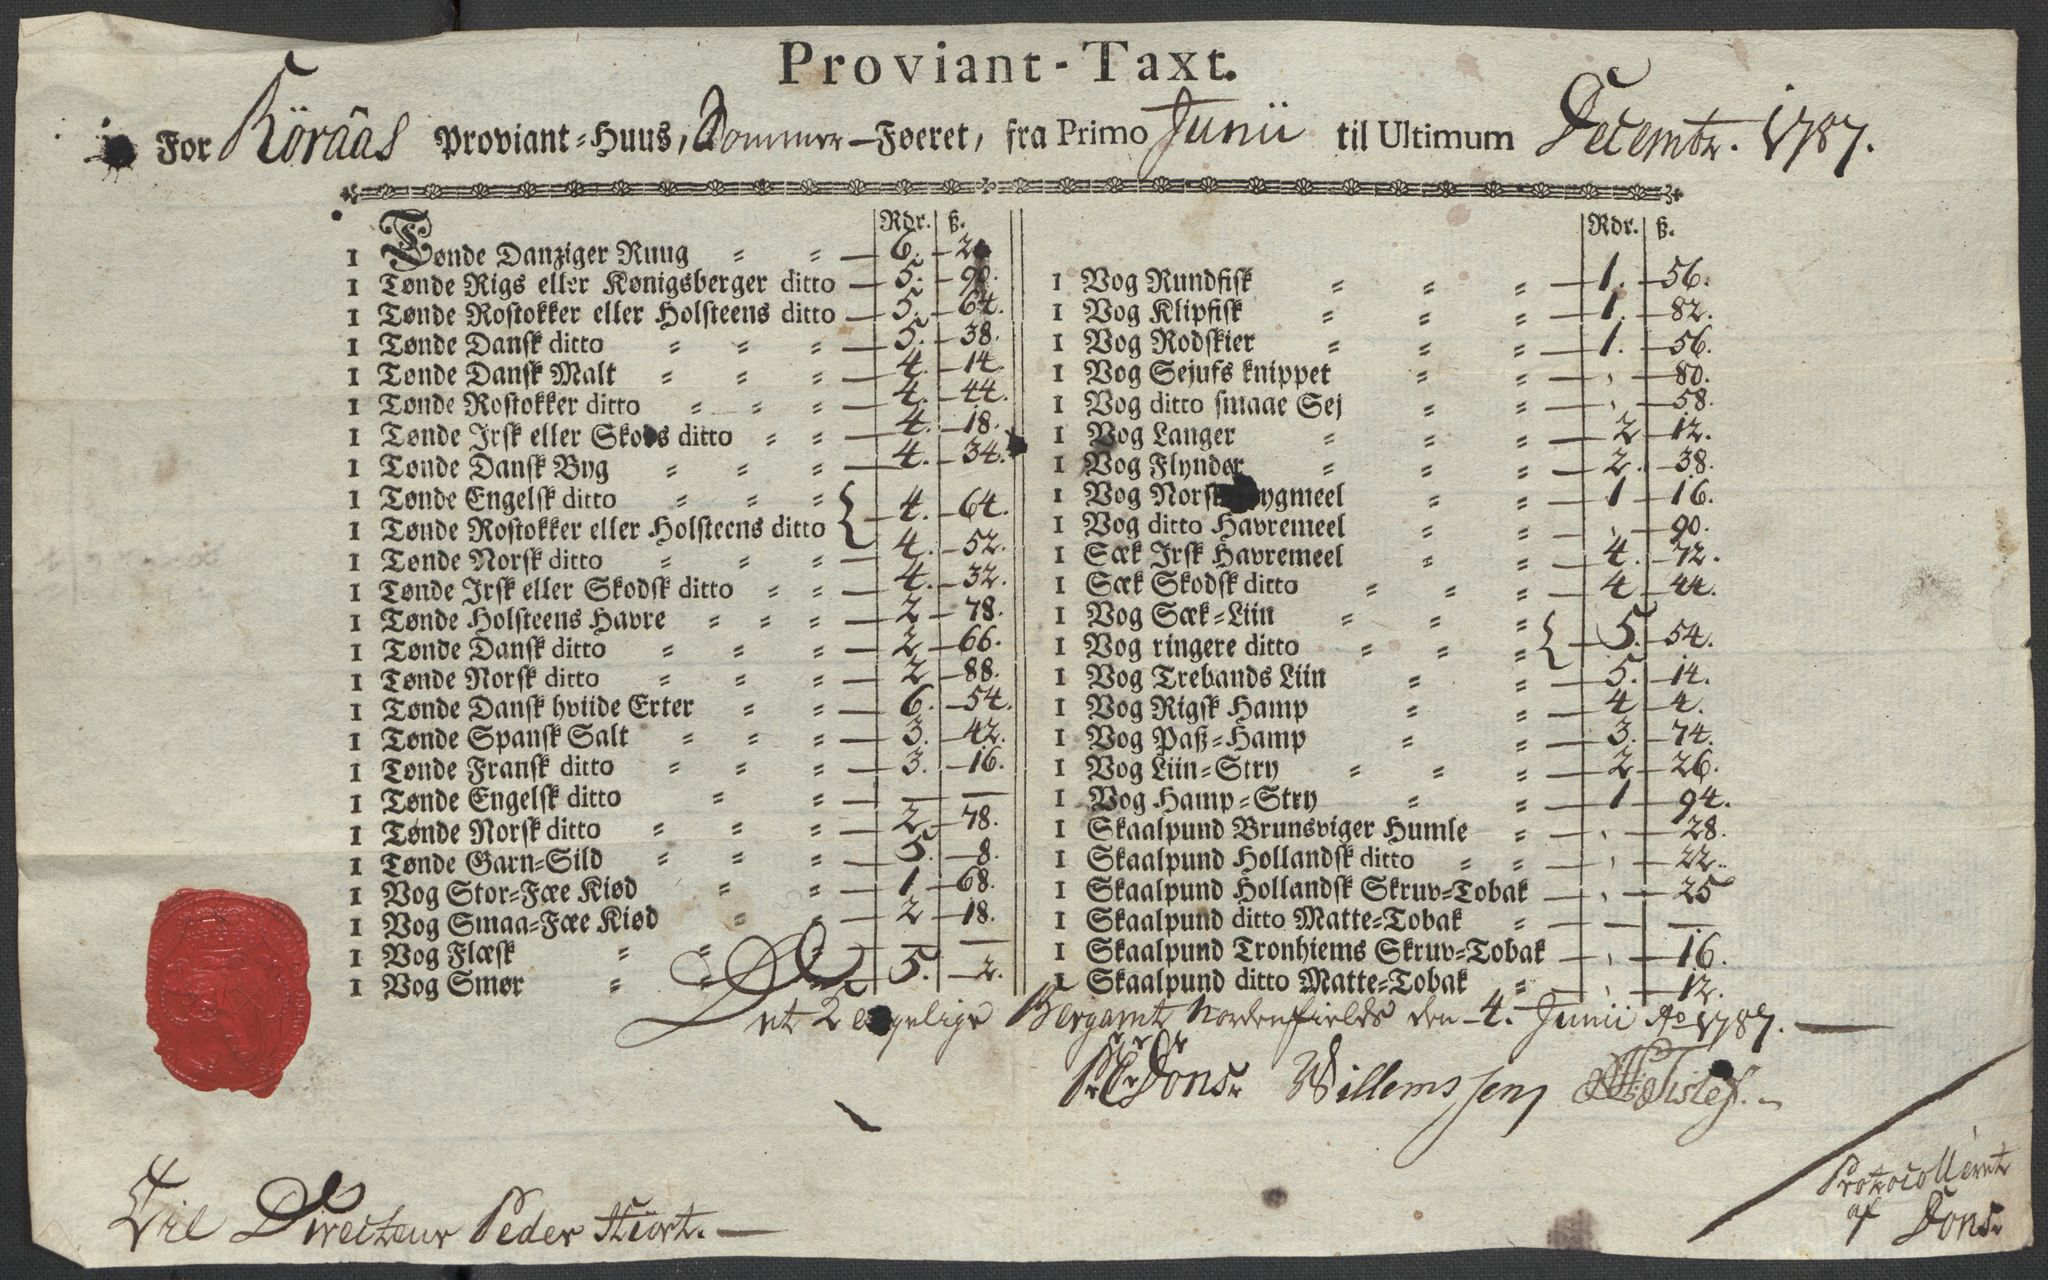 Proviant-Taxt.
For Röraas Proviant-Huus, Sommer-Føeret, fra Primo Junii til Ultimum Decembr. 1787.
Rdr. ß.
1 Tønde Danziger Ruug 6.
1 Tønde Rigs eller Kønigsberger ditto 5. 90.
1 Tønde Rostokker eller Holsteens ditto 5. 64.
1 Tønde Dansk ditto 5. 38.
1 Tønde Dansk Malt 4. 14.
1 Tønde Rostokker ditto 4. 44.
1 Tønde Irsk eller Skods ditto 4. 18.
1 Tønde Dansk Byg 4. 34.
1 Tønde Engelsk ditto
1 Tønde Rostokker eller Holsteens ditto } 4. 64.
1 Tønde Norsk ditto 4. 52.
1 Tønde Irsk eller Skodsk ditto 4. 32.
1 Tønde Holsteens Havre 2 78.
1 Tønde Dansk ditto 2 66.
1 Tønde Norsk ditto 2 88.
1 Tønde Dansk hviide Erter 6. 54.
1 Tønde Spansk Salt 3. 42.
1 Tønde Fransk ditto 3. 16.
1 Tønde Engelsk ditto — —
1 Tønde Norsk ditto 2 78.
1 Tønde Garn-Sild 5. 8.
1 Vog Stor-Fæe Kiød 1. 68.
1 Vog Smaa-Fæe Kiød 2 18.
1 Vog Flæsk — —
1 Vog Smør 5. 2.
Rdr. ß.
1 Vog Rundfisk 1. 56.
1 Vog Klipfisk 1. 82.
1 Vog Rodskier 1. 56.
1 Vog Sejufs knippet 80.
1 Vog ditto smaae Sej 58.
1 Vog Langer 2 12.
1 Vog Flynder 2. 38.
1 Vog Norsk Bygmeel 1 16.
1 Vog ditto Havremeel 90.
1 Sæk Irsk Havremeel 4. 72.
1 Sæk Skodsk ditto 4 44.
1 Vog Sæk-Liin
1 Vog ringere ditto } 5. 54.
1 Vog Trebands Liin 5. 14.
1 Vog Rigsk Hamp 4 4.
1 Vog Paß-Hamp 3. 74.
1 Vog Liin-Stry 2 26.
1 Vog Hamp-Stry 1 94.
1 Skaalpund Brunsviger Humle 28.
1 Skaalpund Hollandsk ditto 22.
1 Skaalpund Hollandsk Skruv-Tobak 25
1 Skaalpund ditto Matte-Tobak — —
1 Skaalpund Tronhiems Skruv-Tobak 16.
1 Skaalpund ditto Matte-Tobak 12.
Det Kongelige Bergamt Nordenfields den 4. Junii Ao 1787.
Dons. Willemssen
Til Directeur Peder Hiort.
Protocolleret
af Dons.